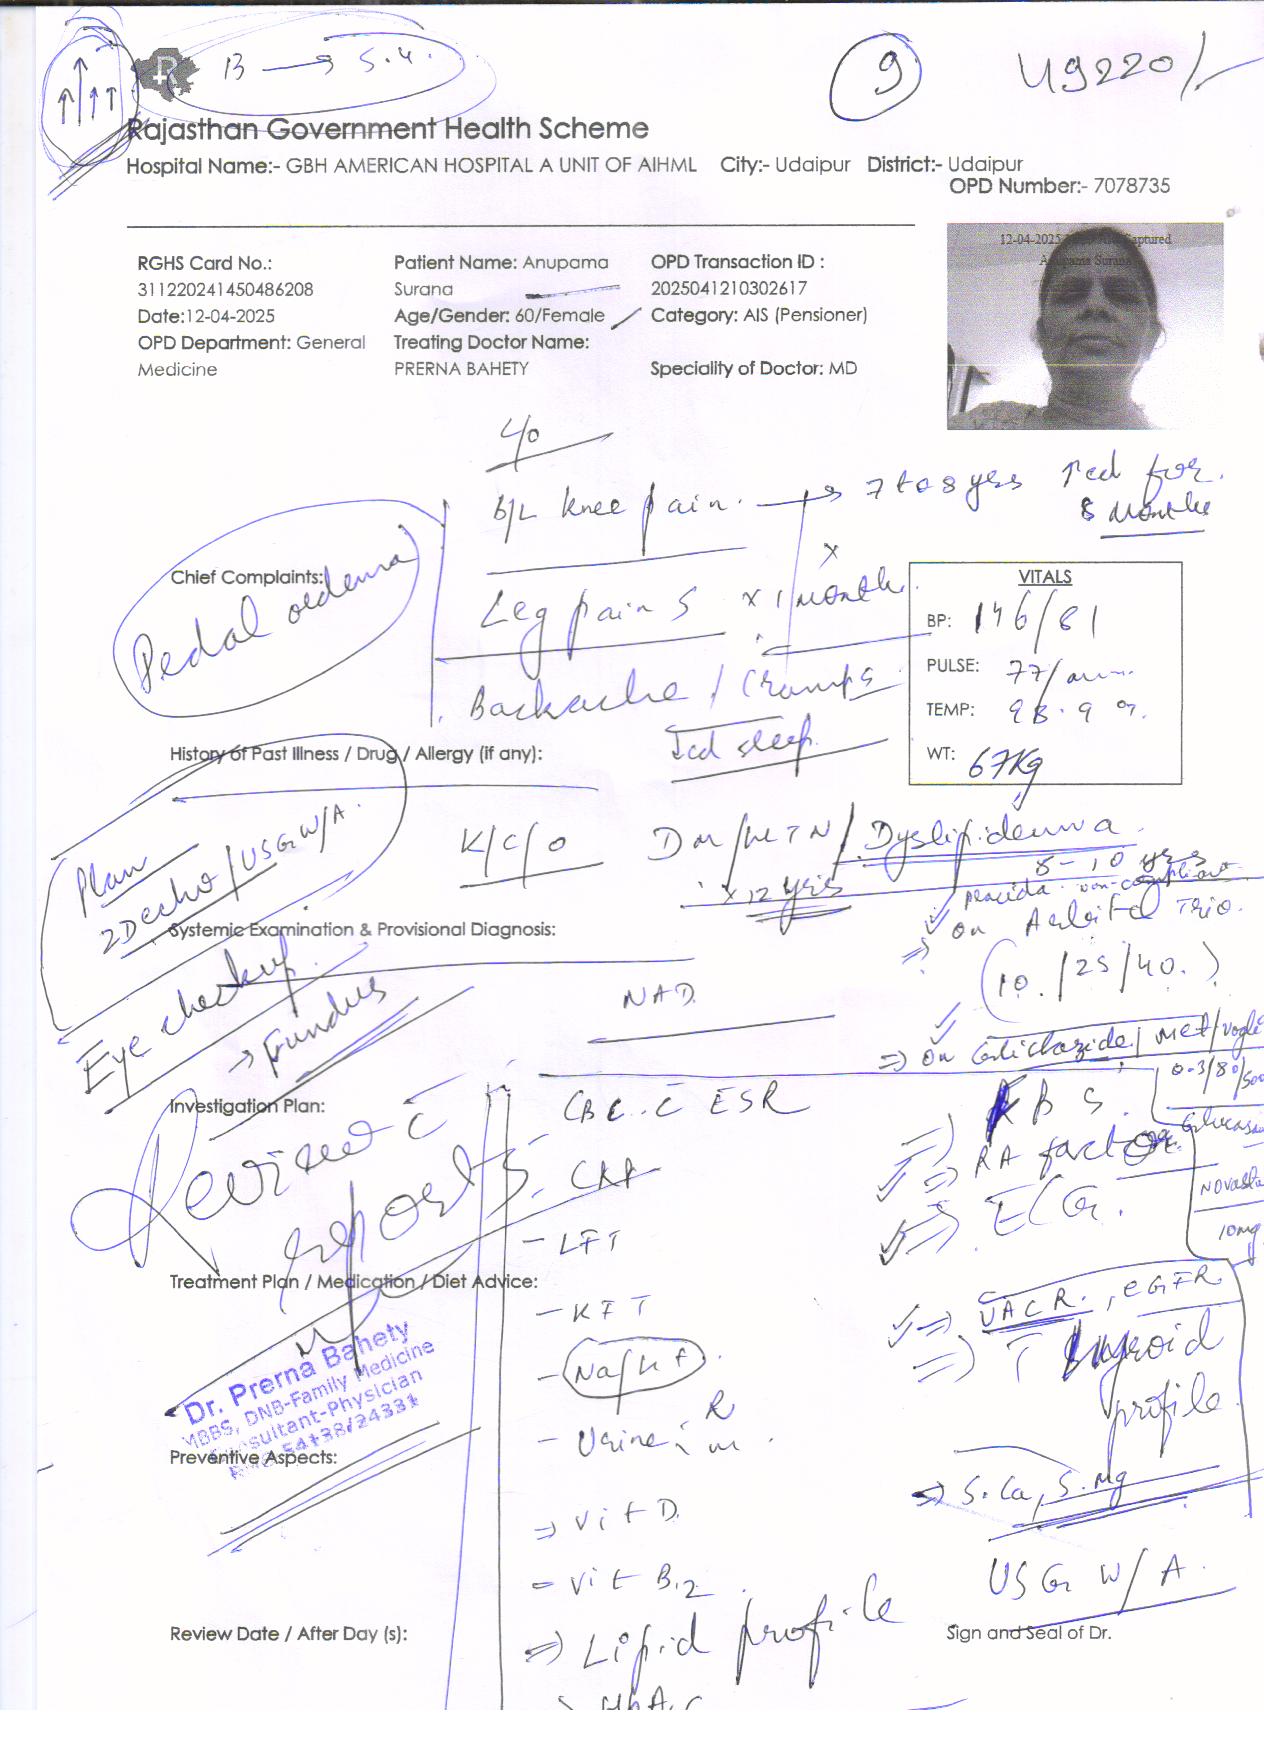 B → S.4.
9
49220/-
Rajasthan Government Health Scheme
Hospital Name:- GBH AMERICAN HOSPITAL A UNIT OF AIHML City:- Udaipur District:- Udaipur
OPD Number:- 7078735
12-04-2025
RGHS Card No.: Patient Name: Anupama OPD Transaction ID :
311220241450486208 Surana 2025041210302617
Date:12-04-2025 Age/Gender: 60/Female Category: AIS (Pensioner)
OPD Department: General Treating Doctor Name:
Medicine PRERNA BAHETY Speciality of Doctor: MD
c/o
B/L knee pain. → 7 to 8 yrs ↑ced for
8 Months
Chief Complaints:
Pedal oedema
Leg pains x 1 month
Backache / Cramps
↓ced sleep
VITALS
BP: 146/81
PULSE: 77/
TEMP: 98.9
WT: 67Kg
History of Past Illness / Drug / Allergy (if any):
K/C/O DM/HTN/Dyslipidemia
x 12 yrs 8-10 yrs
Plan
2Decho/USG W/A.
placida non-compliant
⇒ on Trio.
(10./25/40.)
Systemic Examination & Provisional Diagnosis:
Eye checkup
→ Fundus
NAD.
⇒ on Gliclazide/met/vogli
0.3/80/500
Investigation Plan:
Review c̄
reports
CBC c̄ ESR
- CRP
- LFT
- KFT
- Na/K+
- Urine R/m.
⇒ Vit D.
= Vit B12
⇒ Lipid profile
HbA1c
⇒ RBS.
⇒ RA factor
⇒ ECG.
10mg
⇒ UACR., eGFR
⇒ Thyroid
profile
⇒ S.Ca, S.Mg
USG W/A.
Treatment Plan / Medication / Diet Advice:
Dr. Prerna Bahety
MBBS, DNB-Family Medicine
Consultant-Physician
54138/24331
Preventive Aspects:
Review Date / After Day (s):
Sign and Seal of Dr.